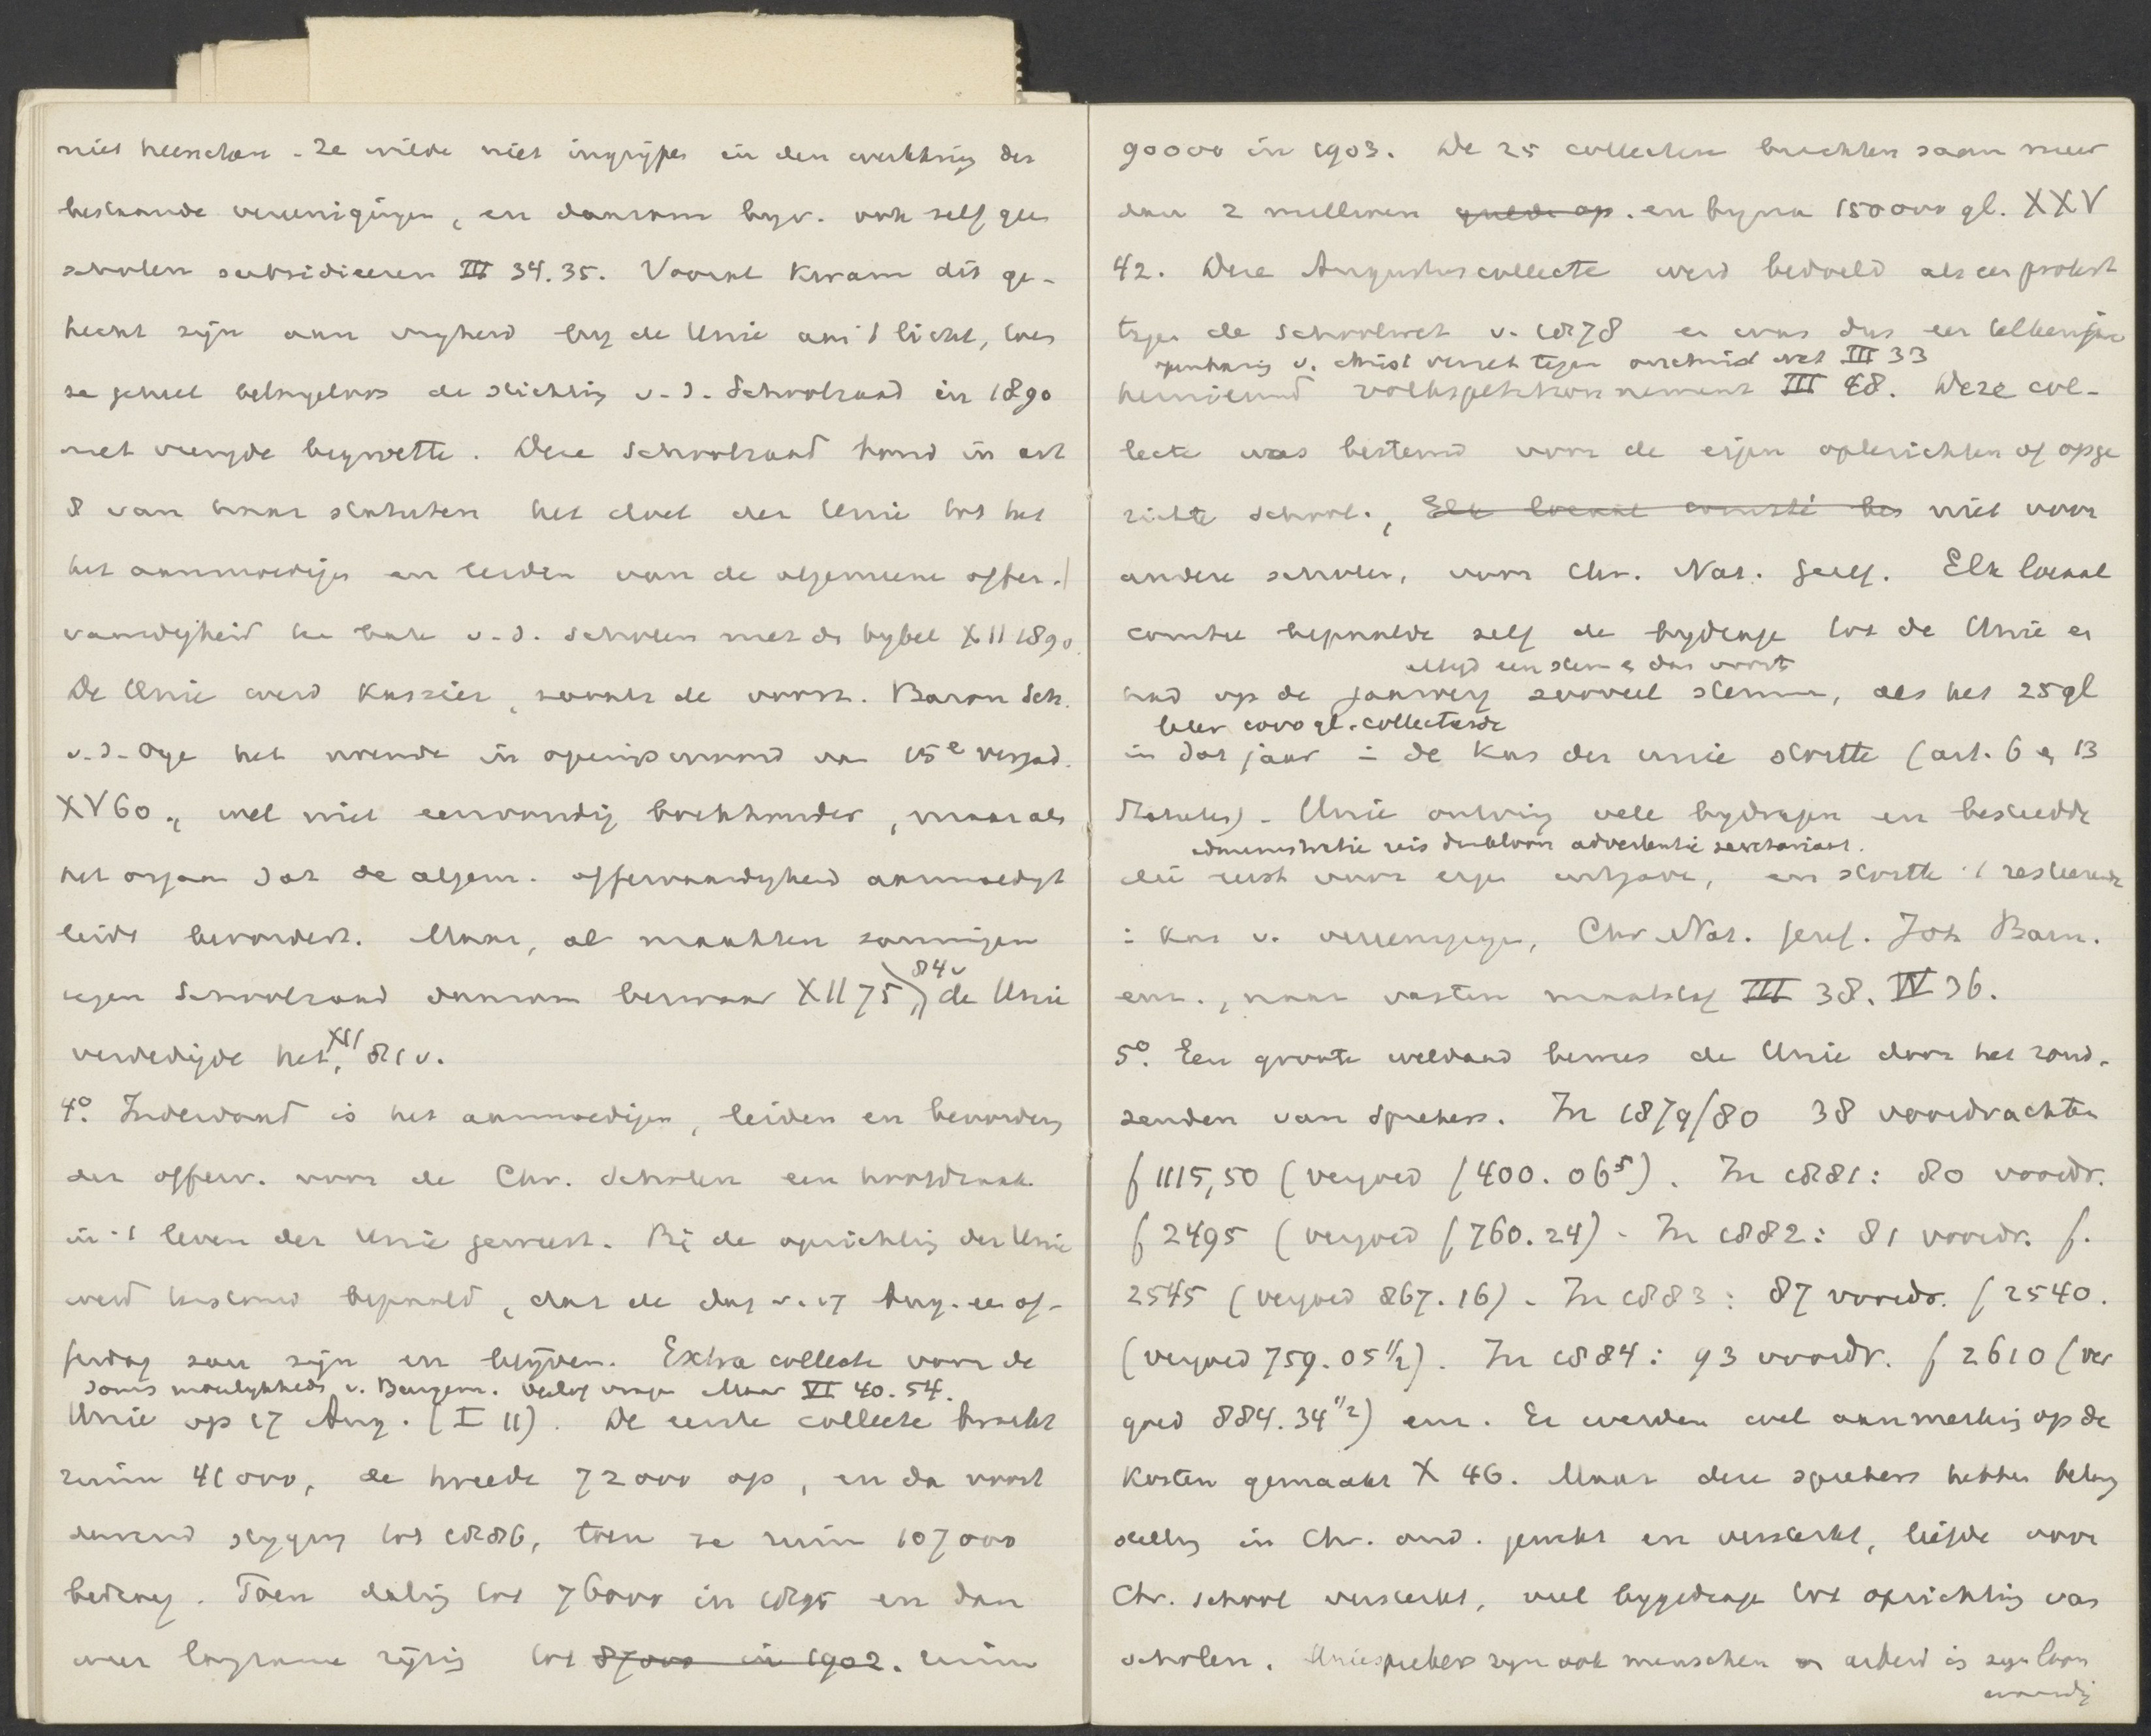 niet heerschen. Ze wilde niet ingrijpen in den werkkring der
bestaande vereenigingen, en daarom bijv. ook self geen
scholen subsidieeren III 34.35. Vooral kwam dit ge-
hecht zijn aan vrijheid bij de Unie aan 't licht, toen
ze geheel belangeloos de stichting v. d. Schoolraad in 1890
met vreugde begroette. Deze Schoolraad hond in art
8 van haar statuten het doel der Unie tot het
het aanmoedigen en leiden van de algemeene offer-
vaardigheid ten bate v. d. scholen met de bybel XII 1890.
De Unie werd Kassier, zooals de voorz. Baron Sch.
v. d. Oye het noemde in openingswoord van 15e vergad.
XV 60., wel niet eenvoudig boekhouder, maar als
het orgaan dat de algem. offervaardigheid aanmoedigt
leidt bevordert. Maar, al maakten sommigen
tegen Schoolraad daarom bezwaar XII 75, 84v de Unie
verdedigde het, XII 81v.
4o. Inderdaad is het aanmoedigen, leiden en bevorderen
der offerv. voor de Chr. scholen een hoofdzaak
in 't leven der Unie geweest. Bi de oprichting der Unie
werd bepaald, dat de dag v. 17 Aug. een of-
ferdag zou zijn en blijven. Extra collecte voor de
soms moeilykheden v. Burgem. Verlof vragen Maar VI 40. 54.
Unie op 17 Aug. (I 11). De eerste collecte bracht
ruim 41000, de tweede 72000 op, en zoo voort
durend styging tot 1886, toen ze ruim 107000
bedroeg. Toen daling tot 76000 in 1895 en dan
weer langzame rijzing tot 87000 in 1902. ruim
90000 in 1903. De 25 collecten brachten saam meer
dan 2 millioen gulden op. en byna 150000 gl. XXV
42. Deze Augustuscollecte werd bedoeld als een protest
tegen de schoolwet v. 1878 en was dus een telkenjare
openbaring v. christ verzet tegen onrecht wet III 33
hernieuwd volkspetitionnement III 48. Deze col-
lecte was bestemd voor de eigen opterichten of opge
richte school., Elk locaal comité bes niet voor
andere scholen, voor Chr. Nat. Geref. Elk locaal
comité bepaalde self de bydrage tot de Unie en
altyd een stem en dan voorts
had op de jaarverg zooveel stemmen, als het 25 gl
later 1000 gl. collecteerde
in dat jaar in de kas der unie stortte (art. 6 en 13
Statuten). Unie ontving vele bydragen en besteedde
administratie reis drukloon advertentie secretariaat.
die eerst voor eigen uitgaven, en stortte 't resteerende
in kas v. vereenigingen, Chr Nat. Geref. Joh Barn.
enz., naar vasten maatstaf III 38. IV 36.
5o. Een groote weldaad bewees de Unie door het rond-
zenden van sprekers. In 1879/80 38 voordrachten
f 1115,50 (vergoed f 400.06⁵). In 1881: 80 voordr.
f 2495 (vergoed f 760.24). In 1882: 81 voordr. f.
2545 (vergoed 867.16). In 1883: 87 voordr. f 2540.
(vergoed 759.05 1/2). In 1884: 93 voordr. f 2610 (ver
goed 884.34 1/2) enz. Er werden wel aanmerking op de
Kosten gemaakt X 46. Maar deze sprekers hebben belang
stelling in Chr. ond. gewekt en versterkt, liefde voor
Chr. school versterkt, veel bygedragen tot oprichting van
scholen. Uniesprekers zyn ook menschen en arbeid is zyn loon
waardig